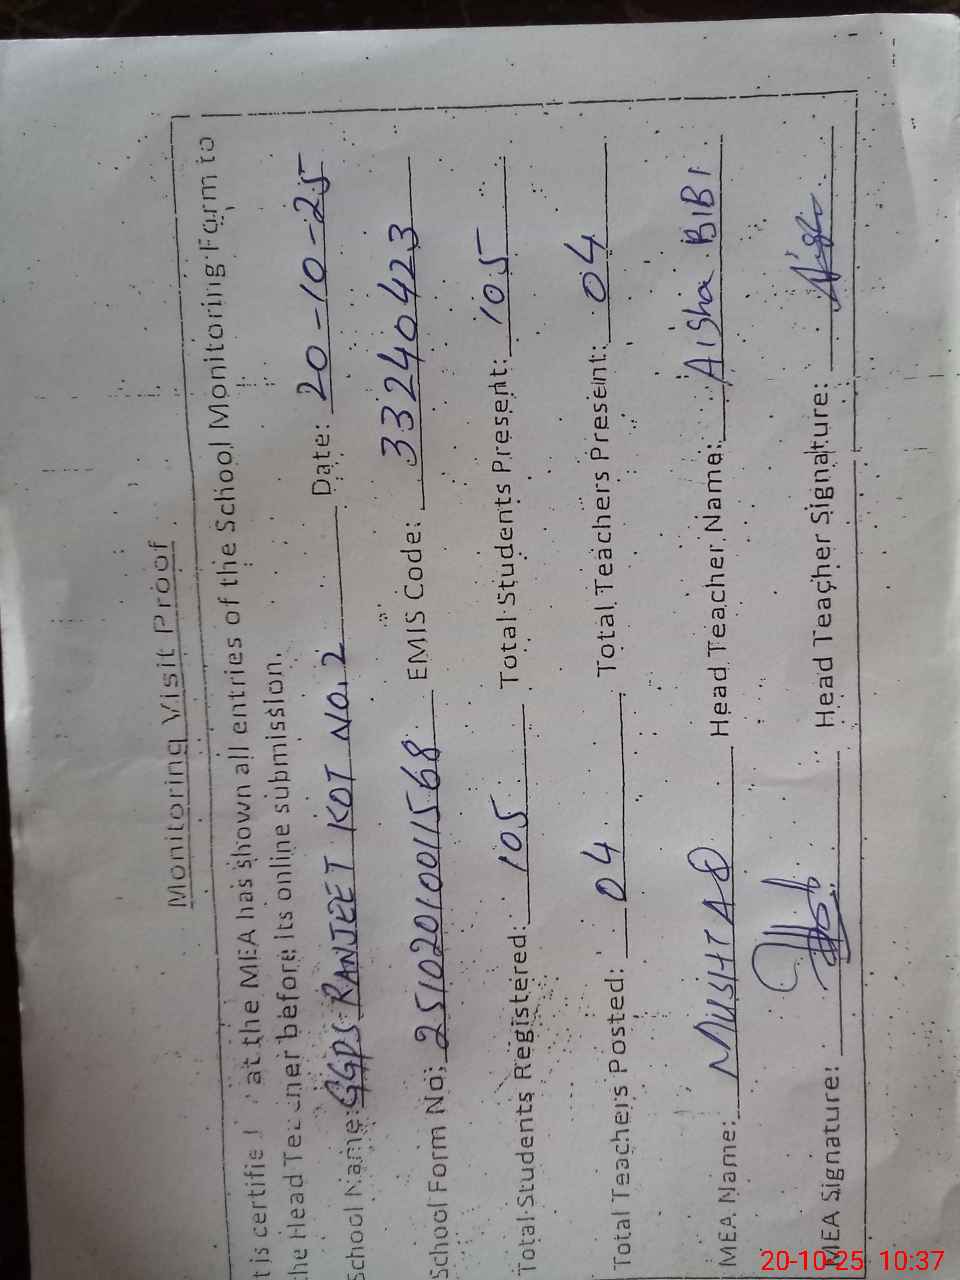 Monitoring Visit Proof
t is certifie at the MEA has shown all entries of the School Monitoring Form to
the Head Teacher before its online submission.
School Name: GGPS RANJEET KOT NO. 2 Date: 20-10-25
School Form No: 2510201001568 EMIS Code: 33240423
Total Students Registered: 105 Total Students Present: 105
Total Teachers Posted: 04 Total Teachers Present: 04
MEA Name: MUSHTAQ Head Teacher Name: AISha BIBI
MEA Signature: Head Teacher Signature:
20-10-25 10:37